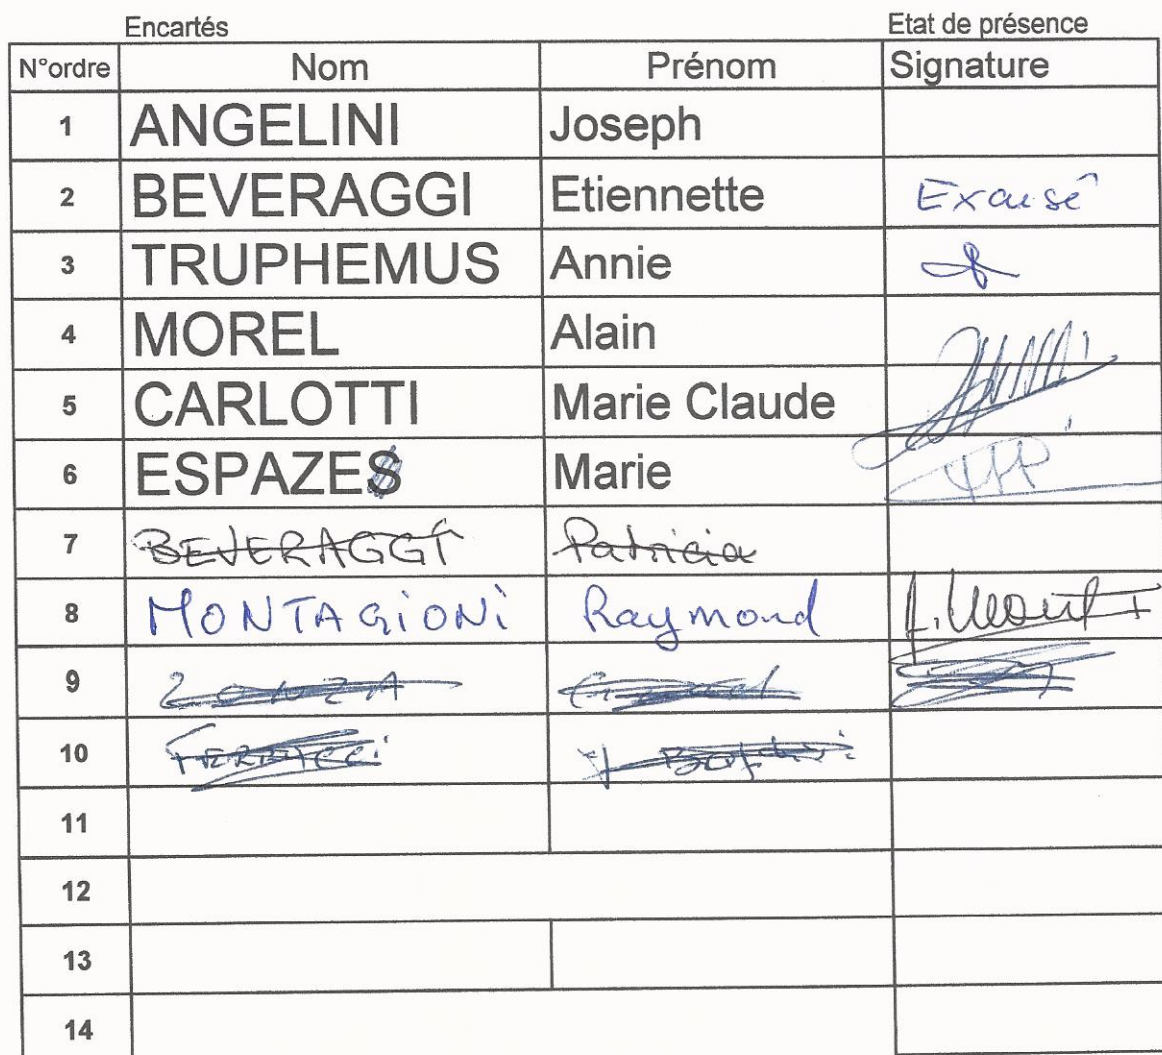 Encartés Etat de présence
N°ordre Nom Prénom Signature
1 ANGELINI Joseph
2 BEVERAGGI Etiennette Excusé
3 TRUPHEMUS Annie
4 MOREL Alain
5 CARLOTTI Marie Claude
6 ESPAZES Marie
7 BEVERAGGI Patricia
8 MONTAGIONI Raymond
9 ZONZA
10 FERRACCI
11
12
13
14